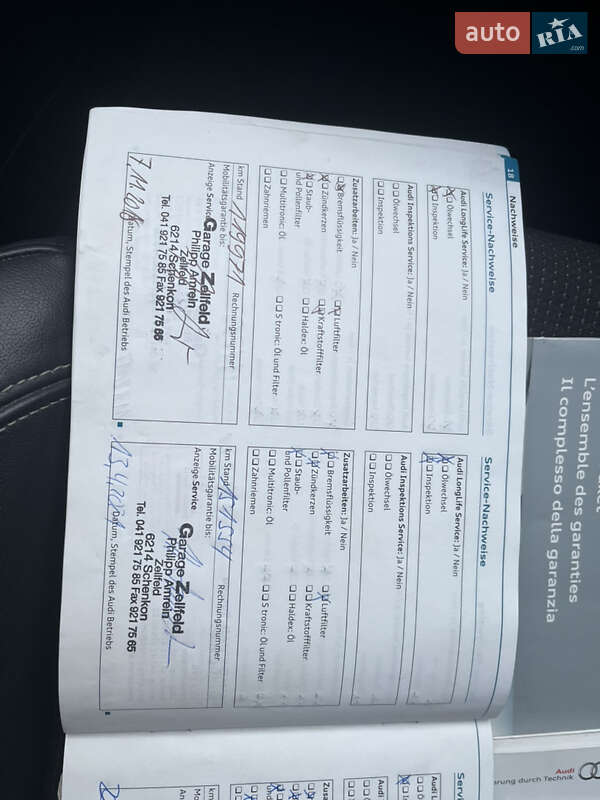 auto RIA .com
18
Nachweise
Service-Nachweise
Audi LongLife Service: Ja / Nein
Ölwechsel
Inspektion
Audi Inspektions Service: Ja / Nein
Ölwechsel
Inspektion
Zusatzarbeiten: Ja / Nein
Bremsflüssigkeit
Luftfilter
Zündkerzen
Kraftstofffilter
Staub-
und Pollenfilter
Haldex: Öl
Multitronic: Öl
S tronic: Öl und Filter
Zahnriemen
km Stand
Rechnungsnummer
Mobilitätsgarantie bis:
Anzeige Service
Garage Zellfeld
Philipp Amrein
Zellfeld
6214 Schenkon
Tel. 041 921 75 85 Fax 921 75 65
Datum, Stempel des Audi Betriebs
Service-Nachweise
Audi LongLife Service: Ja / Nein
Ölwechsel
Inspektion
Audi Inspektions Service: Ja / Nein
Ölwechsel
Inspektion
Zusatzarbeiten: Ja / Nein
Bremsflüssigkeit
Luftfilter
Zündkerzen
Kraftstofffilter
Staub-
und Pollenfilter
Haldex: Öl
Multitronic: Öl
S tronic: Öl und Filter
Zahnriemen
km Stand 151554
Rechnungsnummer
Mobilitätsgarantie bis:
Anzeige-Service
Garage Zellfeld
Philipp Amrein
Zellfeld
6214 Schenkon
Tel. 041 921 75 85 Fax 921 75 65
Datum, Stempel des Audi Betriebs
L'ensemble des garanties
Il complesso della garanzia
Audi